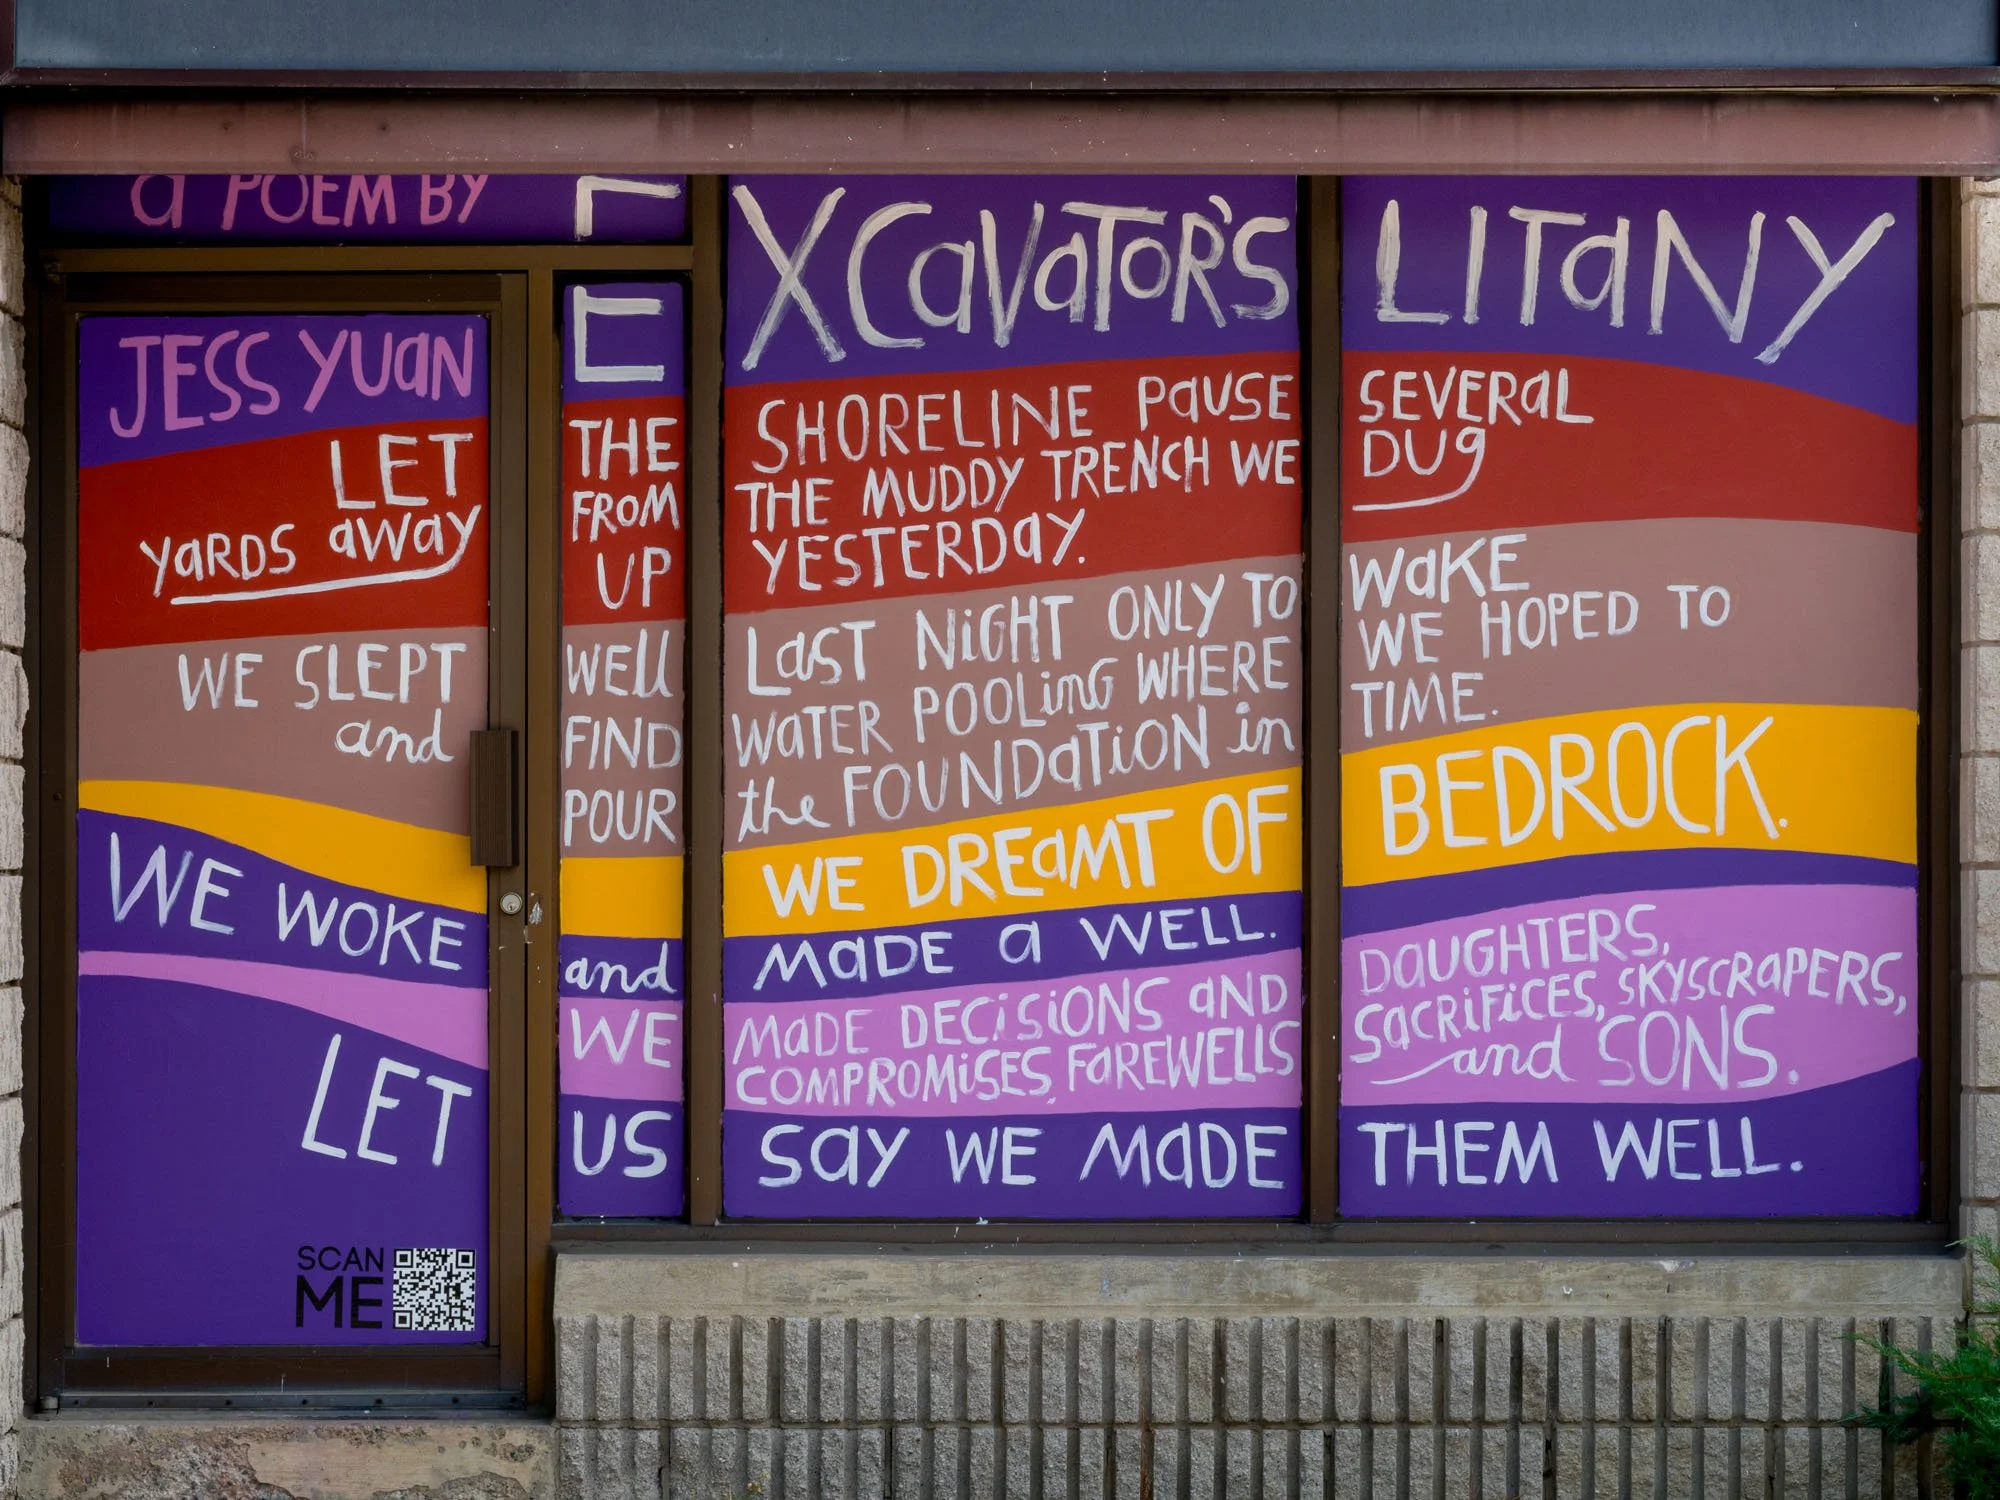 a POEM BY
JESS YUAN
EXCAVATOR'S LITANY
LET THE SHORELINE PAUSE SEVERAL
YARDS AWAY FROM THE MUDDY TRENCH WE DUG
UP YESTERDAY.
WE SLEPT WELL LAST NIGHT ONLY TO WAKE
and FIND WATER POOLING WHERE WE HOPED TO
POUR the FOUNDATION in TIME.
WE DREAMT OF BEDROCK.
WE WOKE and MADE A WELL.
WE MADE DECISIONS AND DAUGHTERS,
COMPROMISES, FAREWELLS SACRIFICES, SKYSCRAPERS,
and SONS.
LET US SAY WE MADE THEM WELL.
SCAN
ME